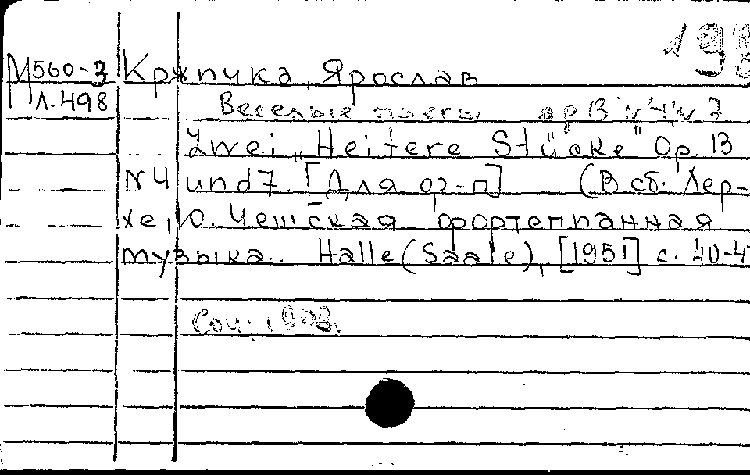 193
М560-3 Кржичка, Ярослав
Л.498 Веселые пьесы op 13 N 4 и 7
Zwei „Heitere Stücke" Op. 13
N 4 und 7. [Для ф-п] (В сб. Лер-
хе, Ю. Чешская фортепианная
музыка. Halle (Saale), [1951] с. 40-4
Соч.